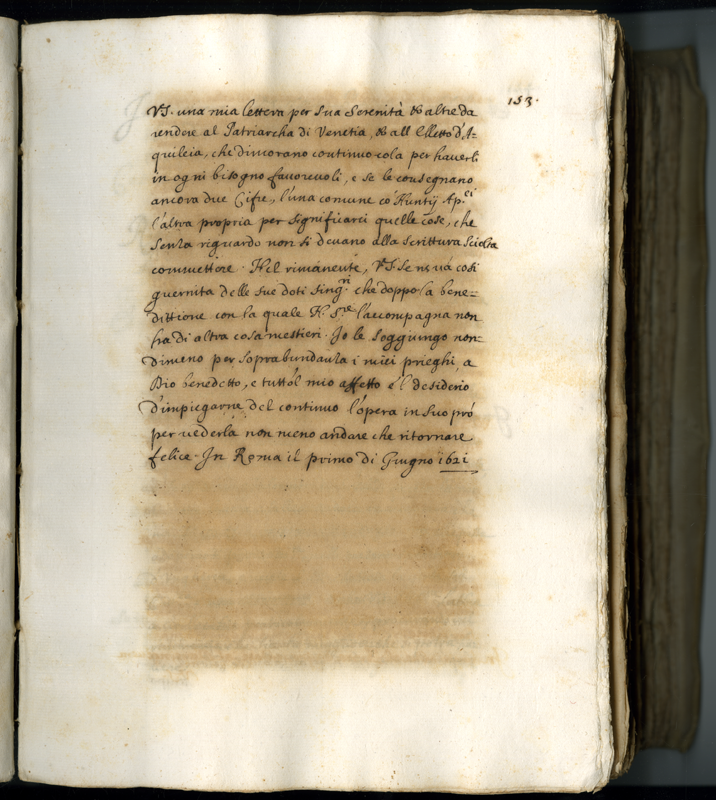 153.
VS. una mia lettera per sua Serenità & altre da
rendere al Patriarcha di Venetia, & all Eletto d'A-
quileia, che dimorano continuo cola per hauerli
in ogni bisogno fauoreuoli, e se le consegnano
ancora due Cifre, l'una comune co' Huntij Ap.ci
l'altra propria per significarci quelle cose, che
senza riguardo non si deuano alla scrittura sciolta
commettere. Nel rimanente, VS. se ne uà cosi
guernita delle sue doti sing.ri che doppo la bene=
dittione con la quale N. S.re l'accompagna non
ha di altra cosa mestieri. Io le soggiungo non-
dimeno per soprabundanza i miei prieghi, a
Dio benedetto, e tutto'l mio affetto e'l desiderio
d'impiegarne del continuo l'opera in suo prò
per uederla non meno andare che ritornare
felice. In Roma il primo di Giugno 1621